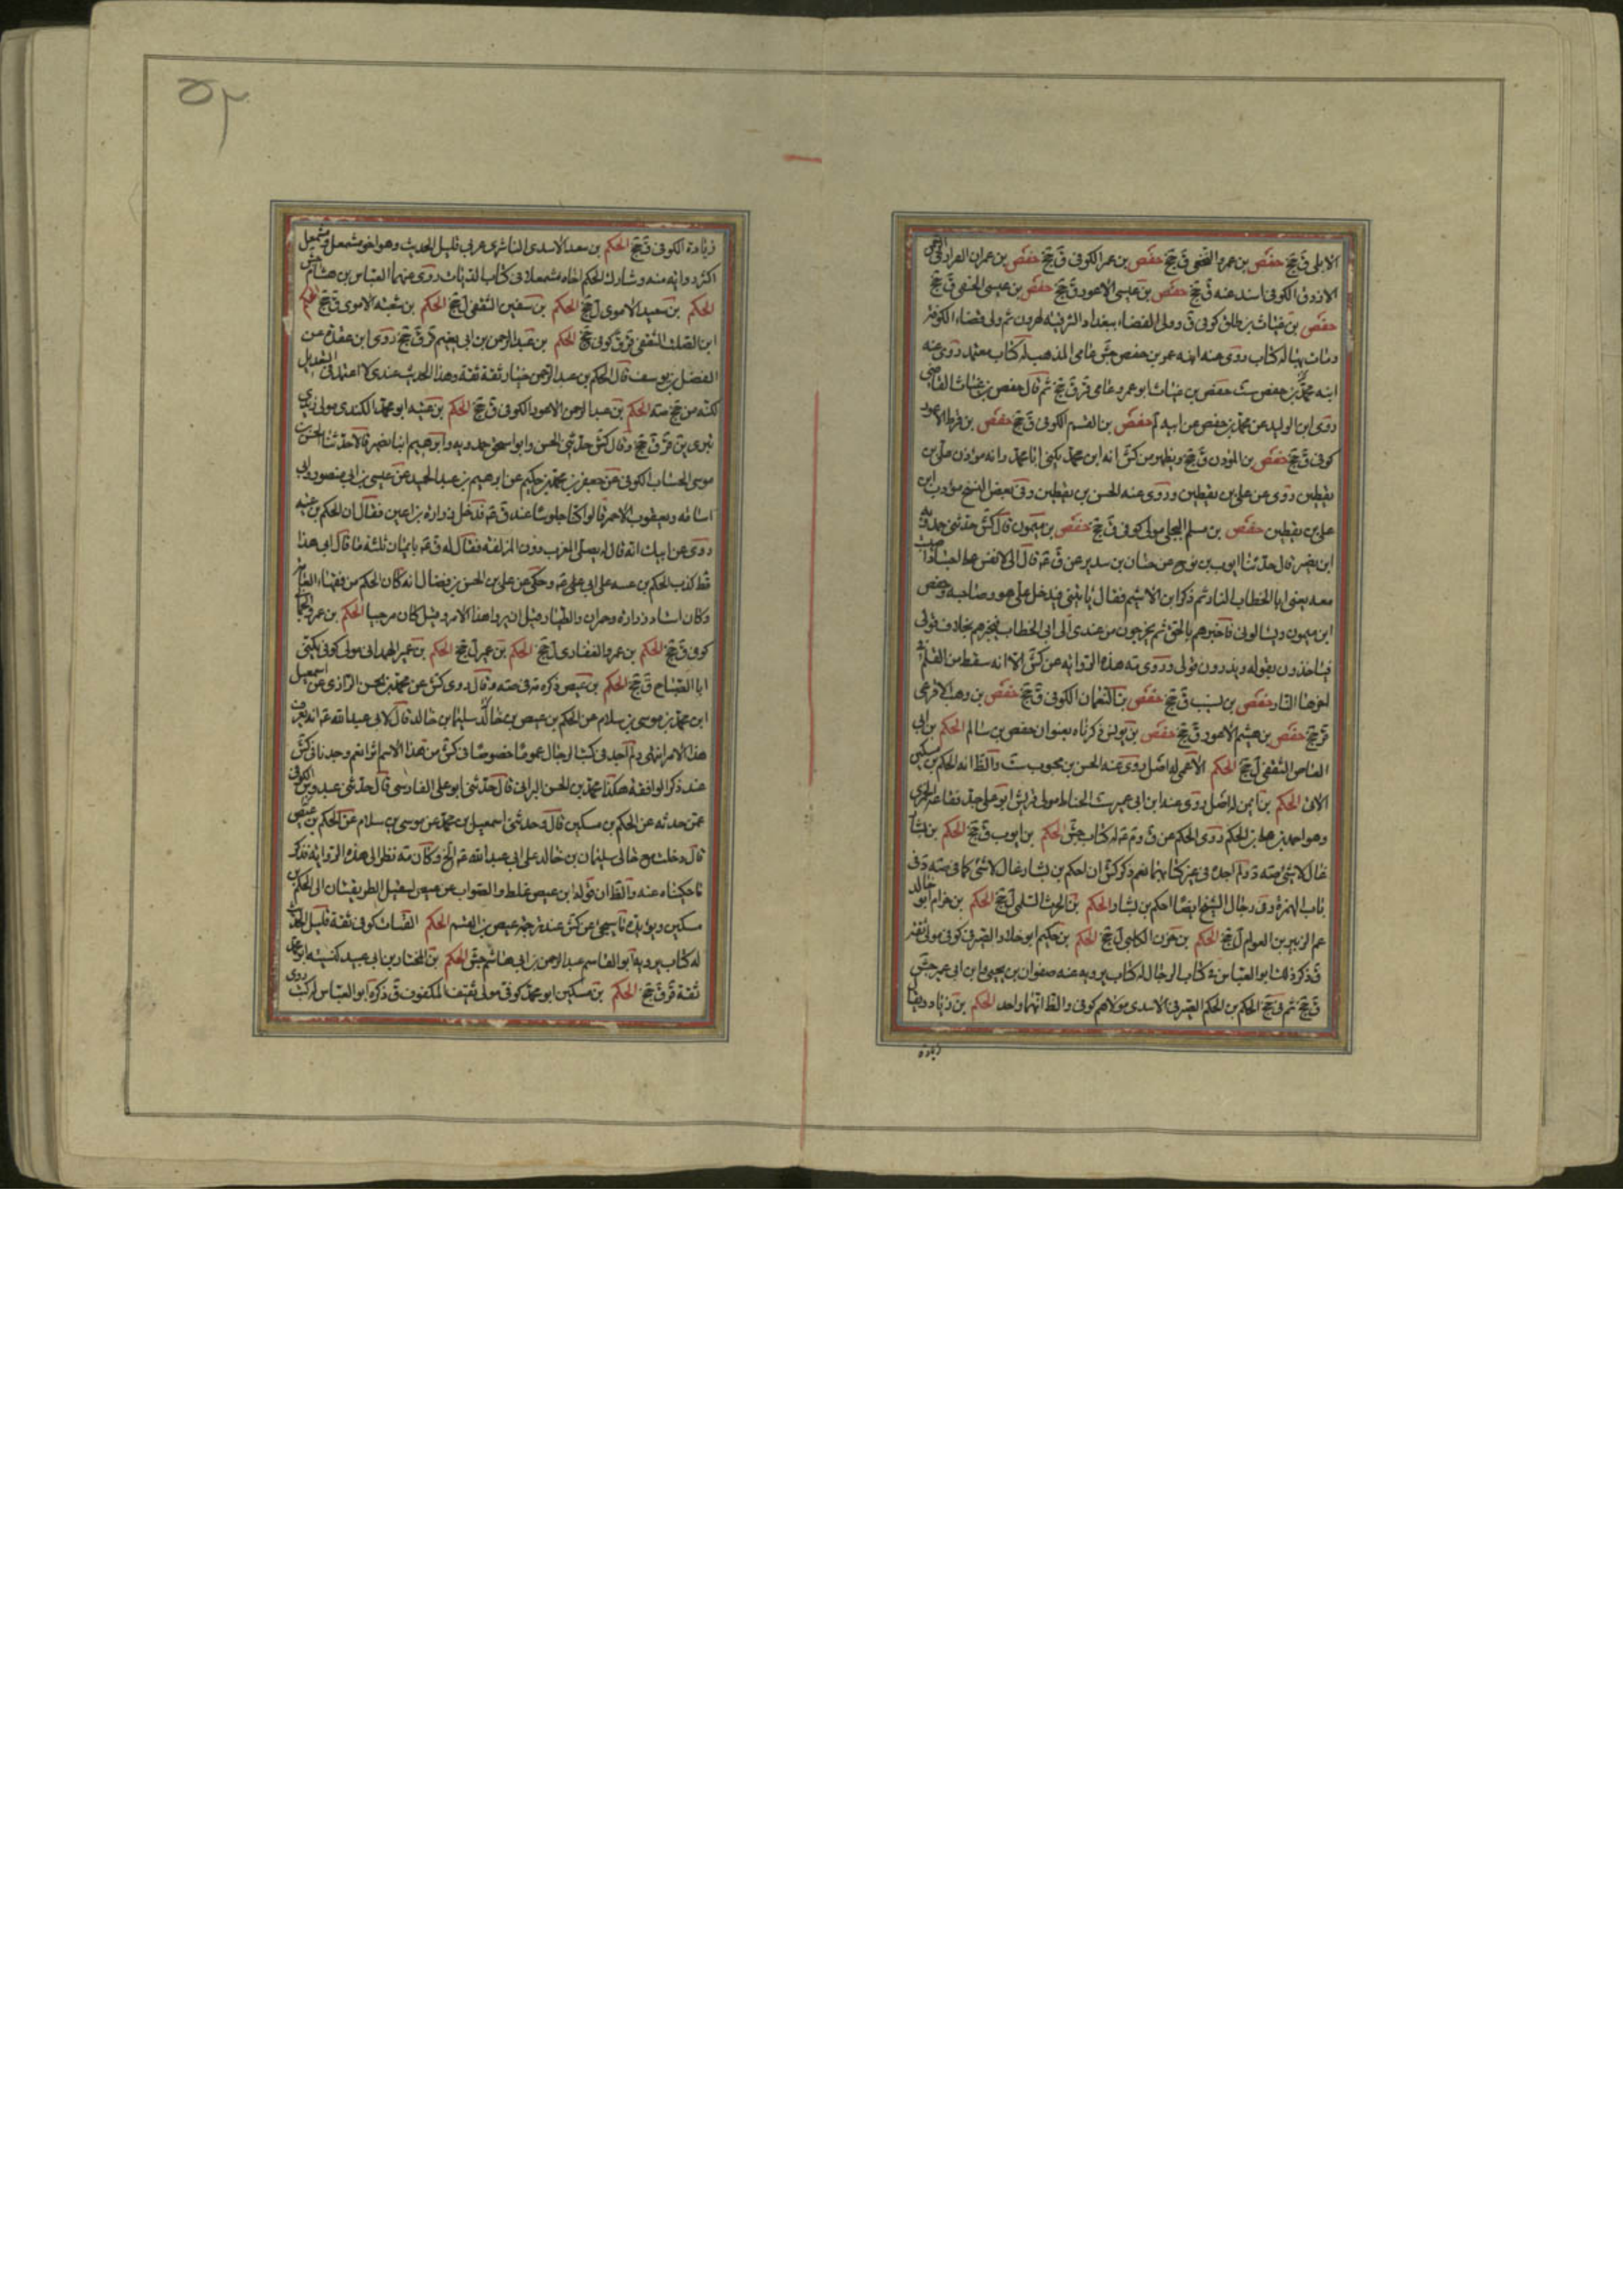 الابلى ق جخ حفص بن عمرو النخعى ق جخ حفص بن عمر الكوفى ق جخ حفص بن عمران الفزارى
الازدى الكوفى اسند عنه ق جخ حفص بن عيسى الاعور ق جخ حفص بن عيسى الحنفى ق جخ
حفص بن غياث بن طلق كوفى ق وولى القضاء ببغداد الشرقيه لهرون ثم ولى قضاء الكوفة
ومات بها له كتاب روى عنه ابنه عمر بن حفص جش عامى المذهب له كتاب معتمد روى عنه
ابنه محمد بن حفص ست حفص بن غياث ابو عمرو عامى قر ق جخ ثم قال حفص بن غياث القاضى
روى ابن الوليد عن محمد بن حفص عن ابيه لم حفص بن القسم الكوفى ق جخ حفص بن قرط الاعور
كوفى ق جخ حفص بن المؤذن ق جخ ويظهر من كش انه ابن محمد يكنى ابا محمد وانه مؤذن على بن
يقطين روى عن على بن يقطين وروى عنه الحسن بن يقطين وفى بعض النسخ مؤدب ابن
على بن يقطين حفص بن مسلم البجلى مولى كوفى ق جخ حفص بن ميمون قال كش حدثنى حمدويه
ابن نصير قال حدثنا ايوب بن نوح عن حنان بن سدير عن ق عه قال انى لانفس على اجساد اصيبت
معه يعنى ابا الخطاب النار ثم ذكر ابن الاشيم فقال ياتينى فيدخل على هو وصاحبه وحفص
ابن ميمون ويسالونى فاخبرهم بالحق ثم يخرجون من عندى الى ابى الخطاب فيخبرهم بخلاف قولى
فياخذون بقوله ويذرون قولى وروى مته هذه الروايه عن كش الا انه سقط من القلم
حفص بن نسيب ق جخ حفص بن النعمان الكوفى ق جخ حفص بن وهب الافرعى
قر جخ حفص بن هيثم الاعور ق جخ حفص بن يونس ذكرناه بعنوان حفص بن سالم الحكم بن ابى
العاص الثقفى ل جخ الحكم الاعمى له اصل روى عنه الحسن بن محبوب ست والظ انه الحكم بن مسكين
الاتى الحكم بن ايمن له اصل روى عنه ابن ابى عمير ست الحناط مولى قريش ابو على جد فقاعة الخمرى
وهو احمد بن على بن الحكم روى الحكم عن ق و م عه له كتاب جش الحكم بن ايوب ق جخ الحكم بن بشار
غال لا شئ صته د ولم اجده فى غير كتابيهما نعم ذكر كش ان احكم بن بشار غال لا شئ كما فى صته د فى
باب الهمزة وفى رجال الشيخ ايضا احكم بن بشار الحكم بن الحرث السلمى ل جخ الحكم بن حزام ابو خالد
عم الزبير بن العوام ل جخ الحكم بن حزن الكلبى ل جخ الحكم بن حكيم ابو خلاد الصيرفى كوفى مولى ثقة
ق ذكر ذلك ابو العباس فى كتاب الرجال له كتاب يرويه عنه صفوان بن يحيى وابن ابى عمير جش
ق جخ ثم فى جخ الحكم بن الحكم الصيرفى الاسدى مولاهم كوفى والظ انهما واحد الحكم بن زياد
زيادة
٥٢
زيادة الكوفى ق جخ الحكم بن سعد الاسدى الناشرى عربى قليل الحديث وهو اخو مشمعل ومشمعل
اكثر رواية منه وشارك الحكم اخاه مشمعلا فى كتاب الديات روى عنهما العباس بن هشام جش
الحكم بن سعيد الاموى ل جخ الحكم بن سفين الثقفى ل جخ الحكم بن شعبه الاموى ق جخ الحكم
ابن الصلت الثقفى قر ق كوفى جخ الحكم بن عبد الرحمن بن ابى نعيم قر ق جخ روى ابن عقدة عن
الفضل بن يوسف قال الحكم بن عبد الرحمن خيار ثقة ثقة وهذا الحديث عندى لا اعتمد فى التعديل
لكنه من جخ صته الحكم بن عبد الرحمن الاعور الكوفى ق جخ الحكم بن عتيبه ابو محمد الكندى مولى زيدى
بترى ين قر ق جخ وقال كش حدثنى الحسن وابو اسحق حمدويه وابرهيم ابنا نصير قالا حدثنا الحسن بن
موسى الخشاب الكوفى عن جعفر بن محمد بن حكيم عن ابرهيم بن عبد الحميد عن عيسى بن ابى منصور وابى
اسامه ويعقوب الاحمر قالوا كنا جلوسا عند ق عه فدخل زراره بن اعين فقال ان الحكم بن عتيبه
روى عن ابيك انه قال له يصلى المغرب دون المزلفة فقال له ق عه بايمان ثلثة ما قال ابى هذا
قط كذب الحكم بن عتيبه على ابى على عه وحكى عن على بن الحسن بن فضال انه كان الحكم من فقهاء العامة
وكان استاد زراره وحمران والطيار قبل ان يروا هذا الامر وقيل كان مرجيا الحكم بن عمرو الجمال
كوفى ق جخ الحكم بن عمرو الغفارى ل جخ الحكم بن عمير ل جخ الحكم بن عمير الهمدانى مولى كوفى يكنى
ابا الصباح ق جخ الحكم بن عيص ذكره مته فى صته وقال روى كش عن محمد بن الحسن الرازى عن اسمعيل
ابن محمد بن موسى بن سلام عن الحكم بن عيص بن خال سليمان بن خالد قال لابى عبد الله عه انه يعرف
هذا الامر انتهى ولم اجد فى كتب الرجال عموما خصوصا فى كش من هذا الاسم اثرا نعم وجدنا فى كش
عند ذكر الواقفة هكذا محمد بن الحسن البراثى قال حدثنى ابو على الفارسى قال حدثنى عبدوس الكوفى
عمن حدثه عن الحكم بن مسكين قال وحدثنى اسمعيل بن محمد عن موسى بن سلام عن الحكم بن عيص
قال دخلت مع خالى سليمان بن خالد على ابى عبد الله عه الخ وكان مته نظر الى هذه الروايه فذكر
ما حكيناه عنه والظ ان قوله ابن عيص غلط والصواب عن عيص ليصل الطريقان الى الحكم بن
مسكين ويؤيده ما سيجئ عن كش عند ترجمة عيص بن القسم الحكم القتات كوفى ثقة قليل الحديث
له كتاب يرويه ابو القاسم عبد الرحمن بن ابى هاشم جش الحكم بن المختار بن ابى عبيد كنيته ابو محمد
ثقة قر ق جخ الحكم بن مسكين ابو محمد كوفى مولى ثقيف المكفوف ق ذكره ابو العباس له كتب روى